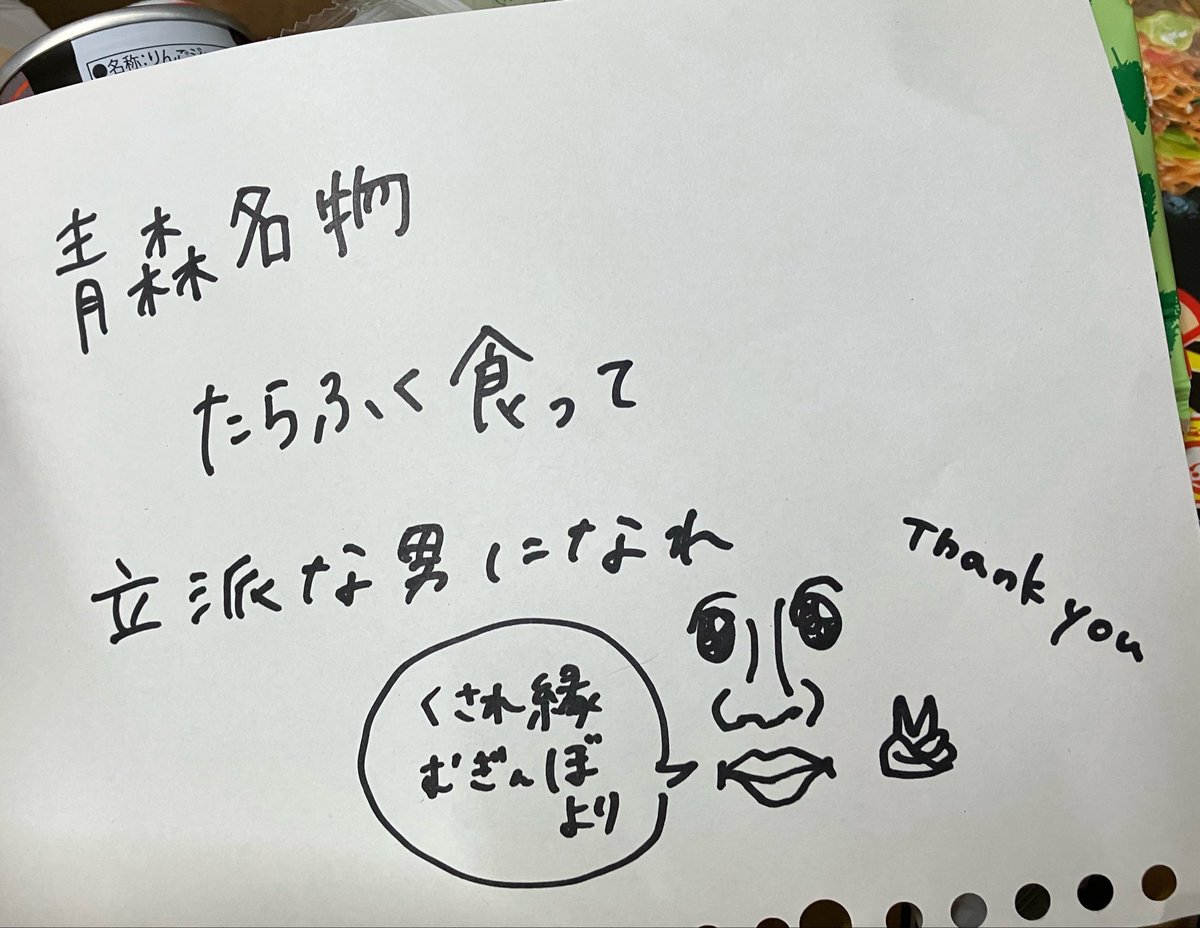 ●名称:りんご
青森名物
たらふく食って
立派な男になれ
Thank you
くされ縁
むぎんぼ
より